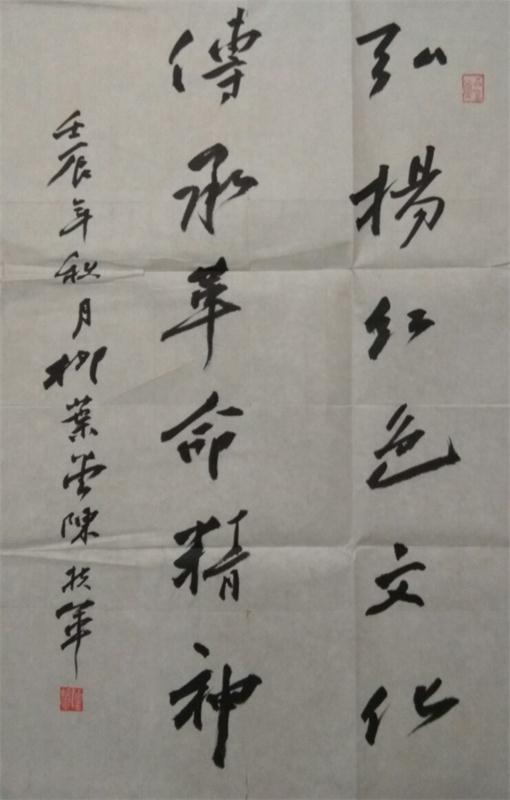 弘揚红色文化
傳承革命精神
壬辰年秋月柳葉堂陳扶軍